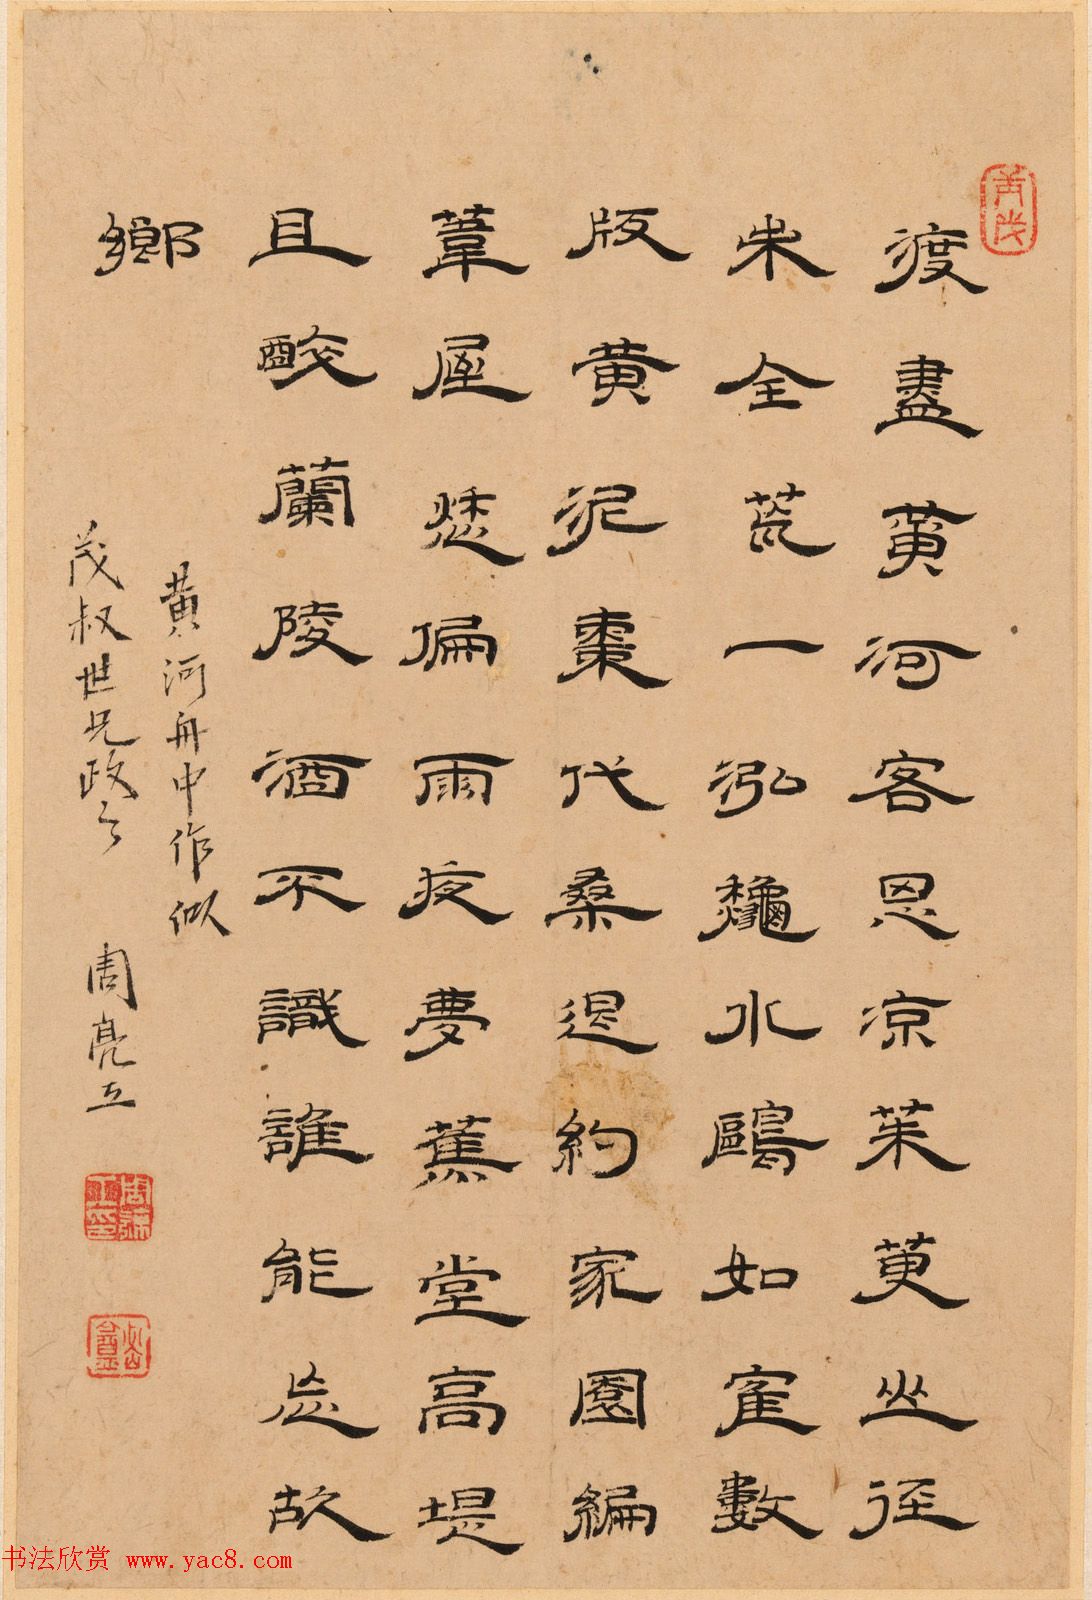 渡盡黄河客思凉茱萸坐徑
未全荒一泓龝水鷗如寉數
版黄泥棗代桑退約家園編
葦屋愁偏雨夜夢蕉堂高堤
且醉蘭陵酒不識誰能忘故
鄉
黄河舟中作似
茂叔世兄政之
周亮工
书法欣赏 www.yac8.com